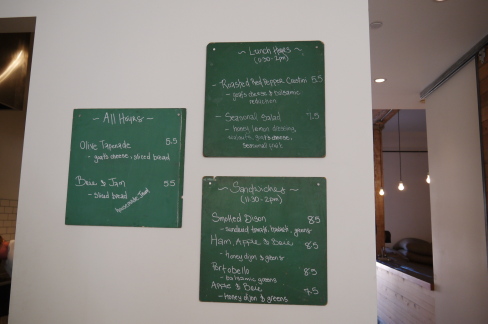 ~ All Hours ~
Olive Tapenade 5.5
- goats cheese, sliced bread
Brie & Jam 5.5
- sliced bread
homemade Jam!
~ Lunch Hours ~
(11:30 - 2pm)
- Roasted Red Pepper Crostini 5.5
- goats cheese & balsamic
reduction
- Seasonal Salad 7.5
- honey lemon dressing,
walnuts, goats cheese,
seasonal fruit
~ Sandwiches ~
(11:30 - 2pm)
Smoked Bison 8.5
- sundried tomato, greens
Ham, Apple & Brie 8.5
- honey dijon & greens
Portobello 8.5
- balsamic greens
Apple & Brie 7.5
- honey dijon & greens